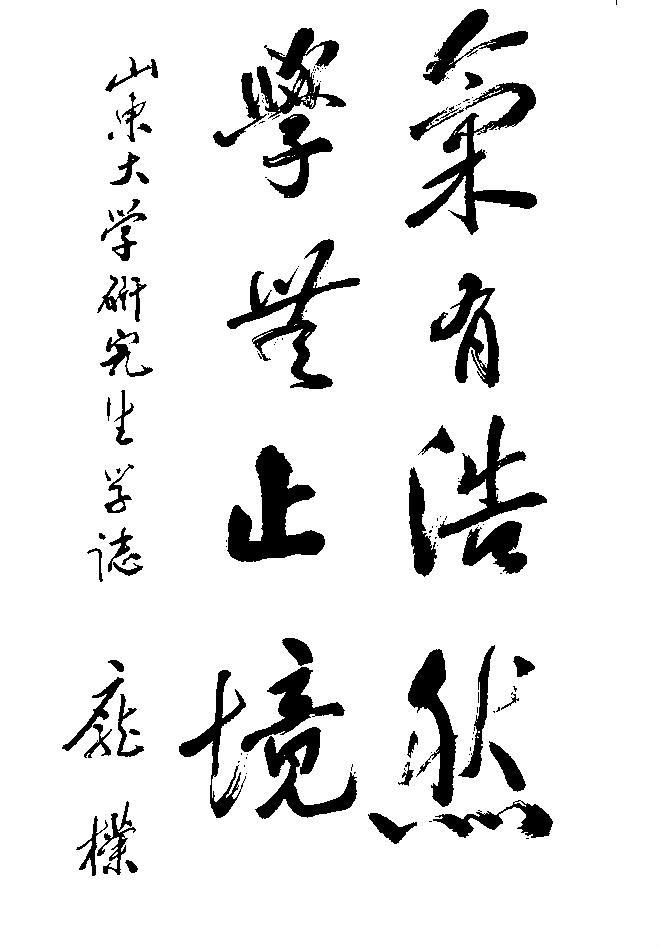 氣有浩然
學無止境
山东大学研究生学誌
龐樸